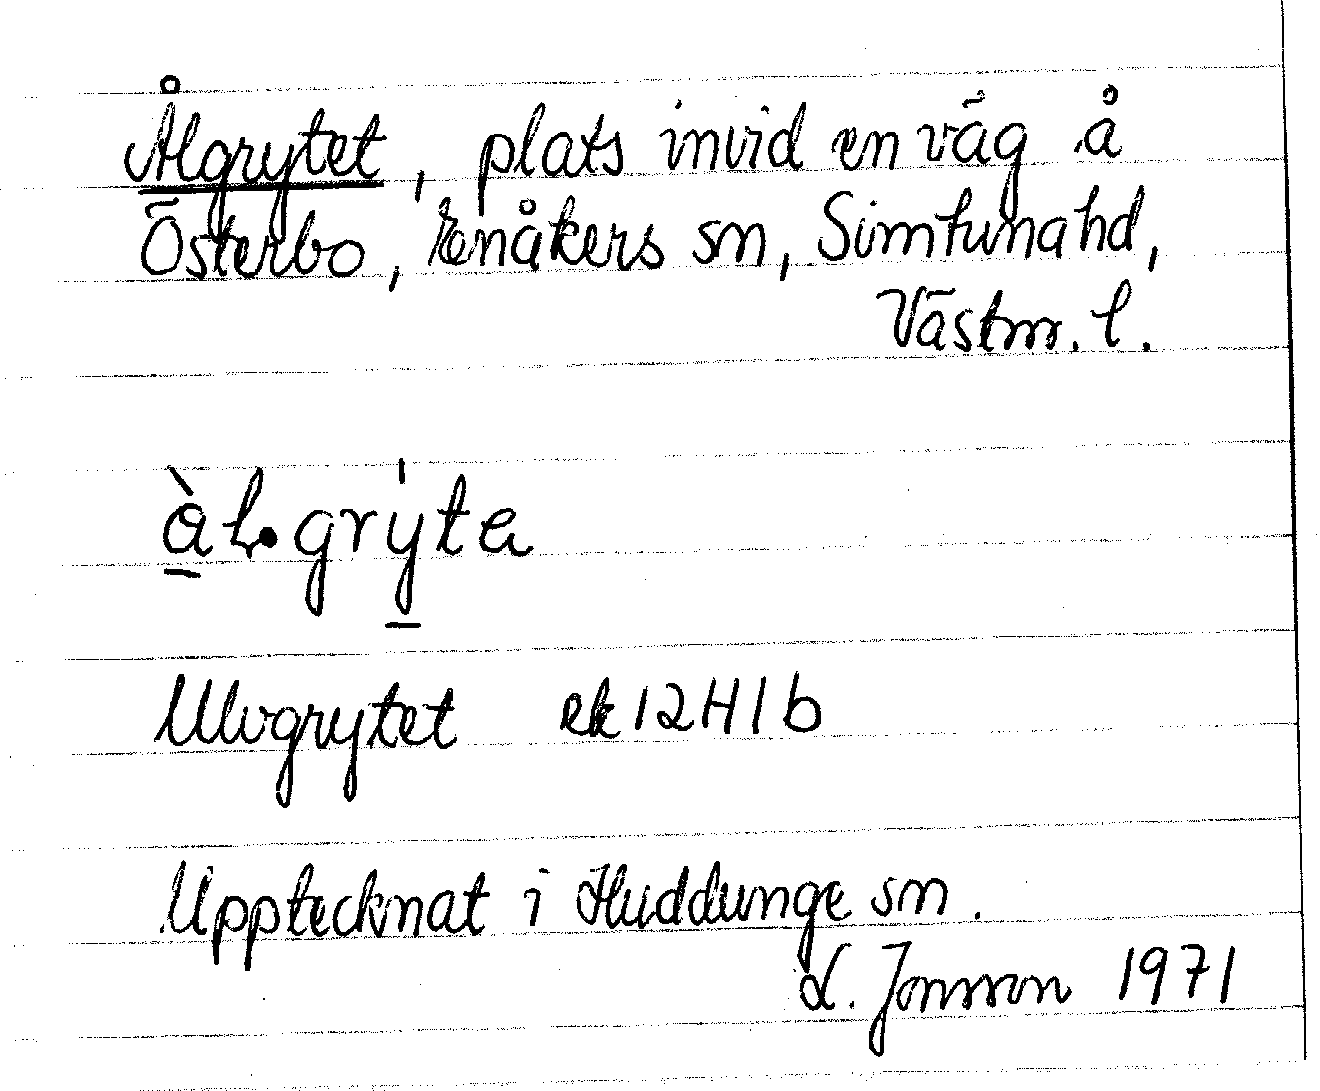 Ålgrytet, plats invid en väg å
Österbo, Enåkers sn, Simtuna hd,
Västm. l.
àl·grýta
Ulvgrytet ek 12H1b
Upptecknat i Huddunge sn.
L. Jonsson 1971